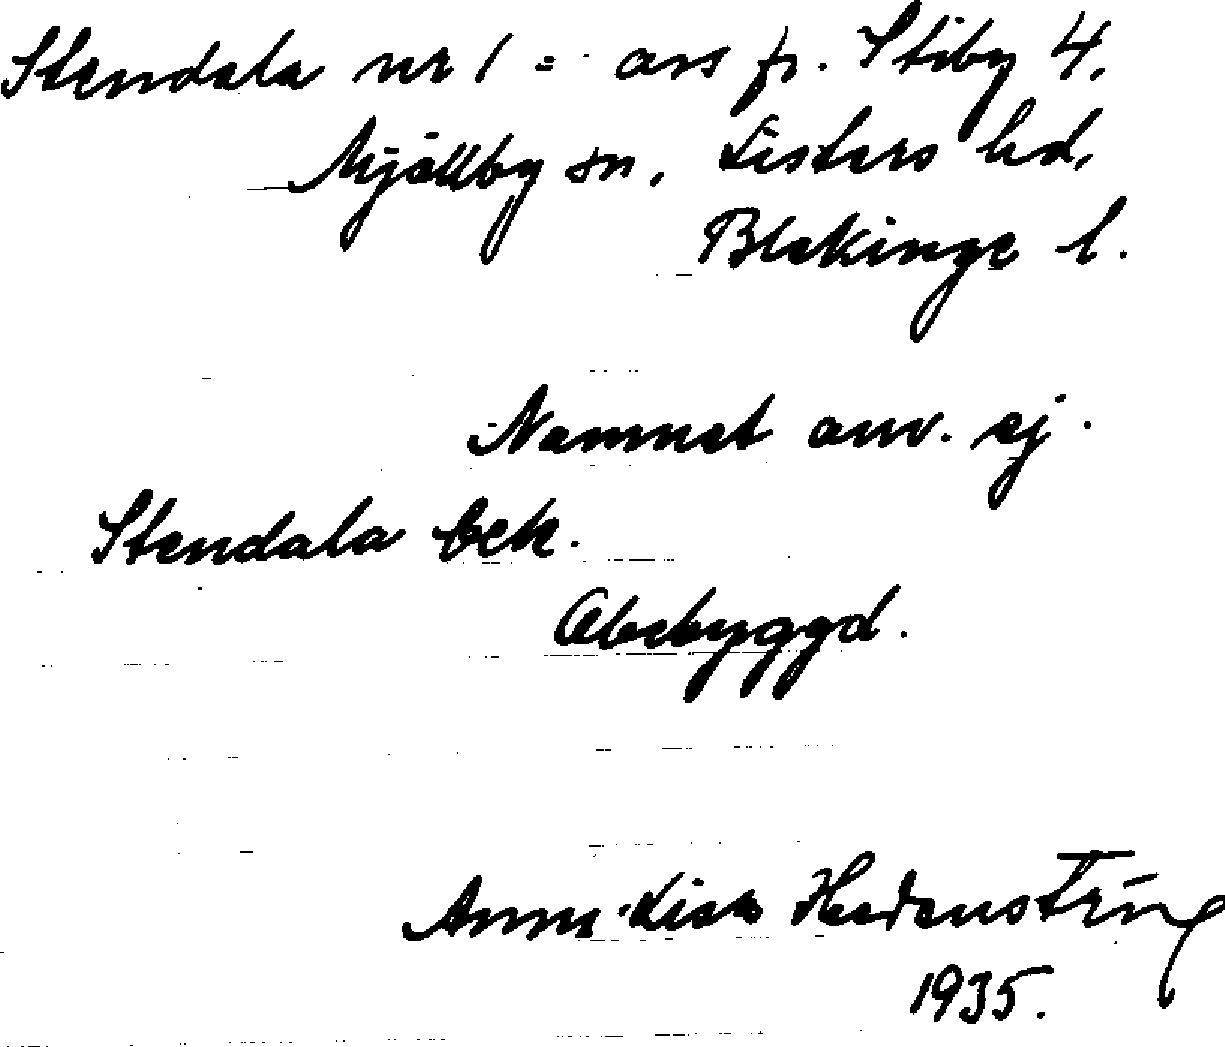 Stendala nr 1 = avs fr. Stiby 4,
Mjällby sn, Listers hd,
Blekinge l.
Namnet anv. ej.
Stendala bek.
Obebyggd.
Anna-Lisa Hedenstring
1935.